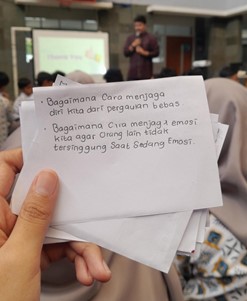 • Bagaimana Cara menjaga
diri kita dari pergaulan bebas
• Bagaimana Cara menjaga emosi
kita agar Orang lain tidak
tersinggung Saat Sedang Emosi.